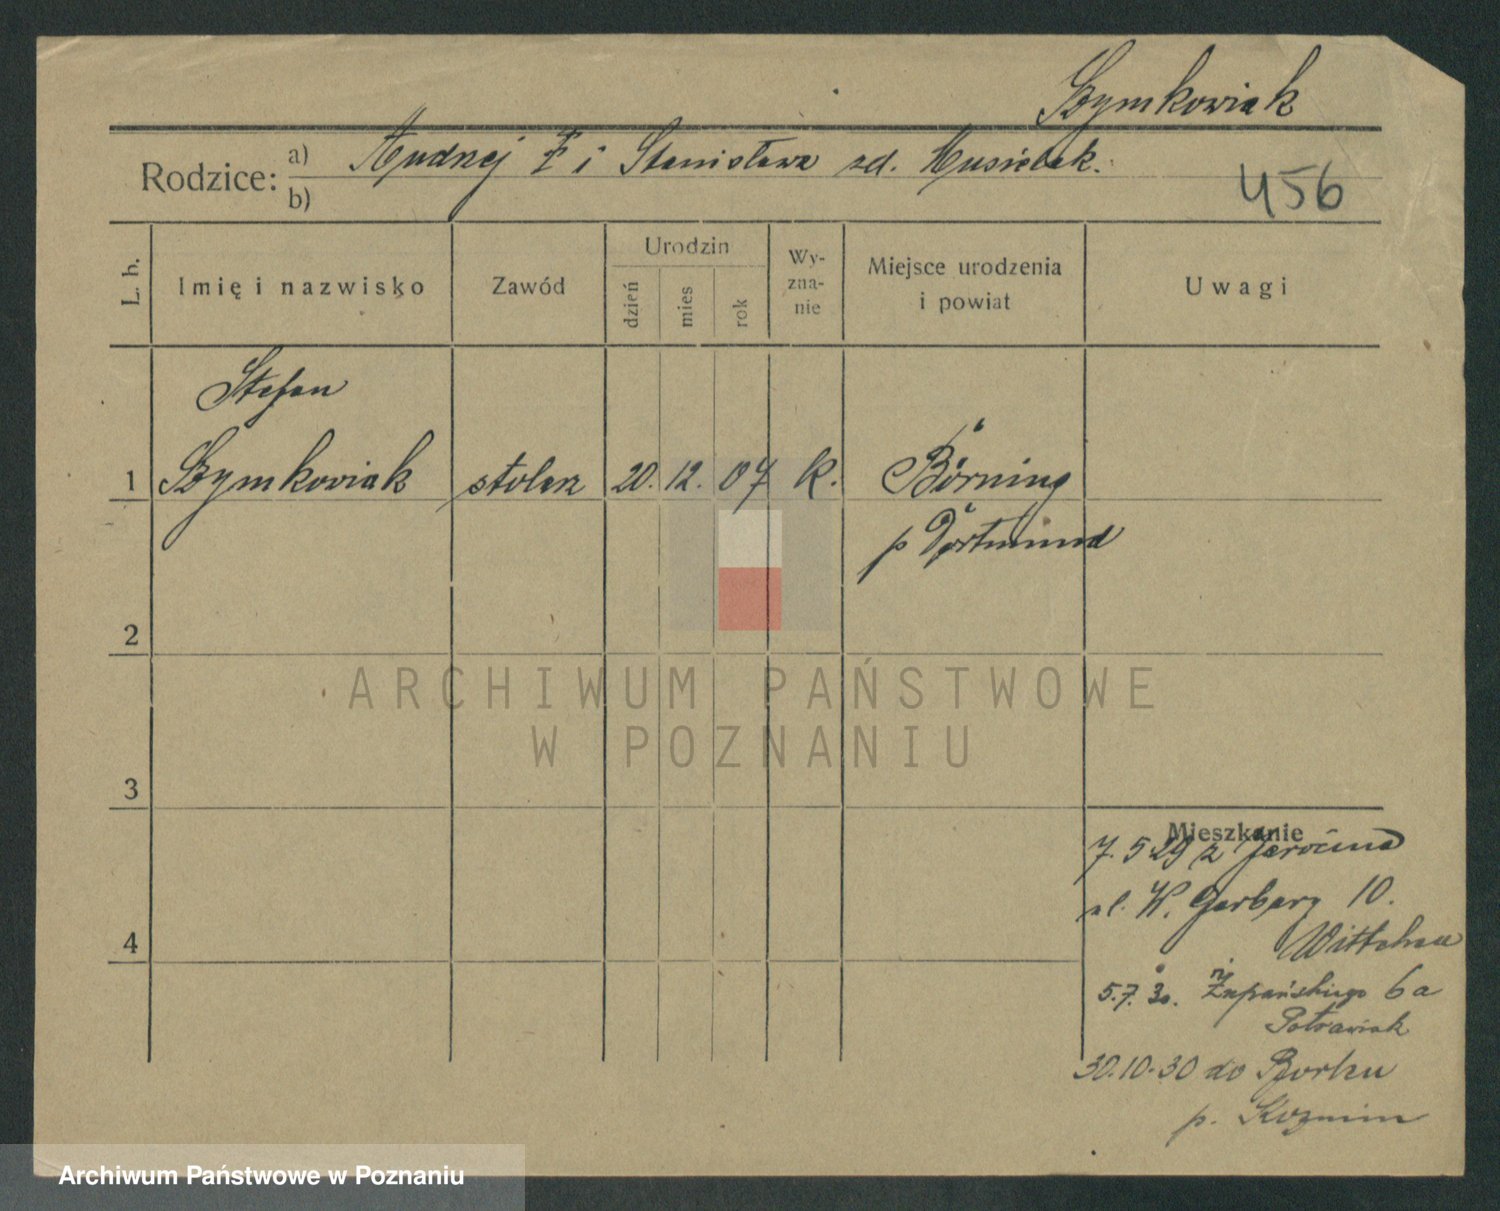 Szymkowiak
Rodzice: a) Andrzej i Stanisława zd. Musielak.
b)
456
L. b.
Imię i nazwisko
Zawód
Urodzin
dzień
mies
rok
Wy-
zna-
nie
Miejsce urodzenia
i powiat
Uwagi
Stefan
1 Szymkowiak stolarz 20. 12. 07 k. Börning
p Dortmund
2
3
4
Mieszkanie
7.5.29 z Jarocina
ul. W. Garbary 10.
5.7.30. Żupańskiego 6a
Potrawiak
30.10.30 do Borku
p. Koźmin
ARCHIWUM PAŃSTWOWE
W POZNANIU
Archiwum Państwowe w Poznaniu